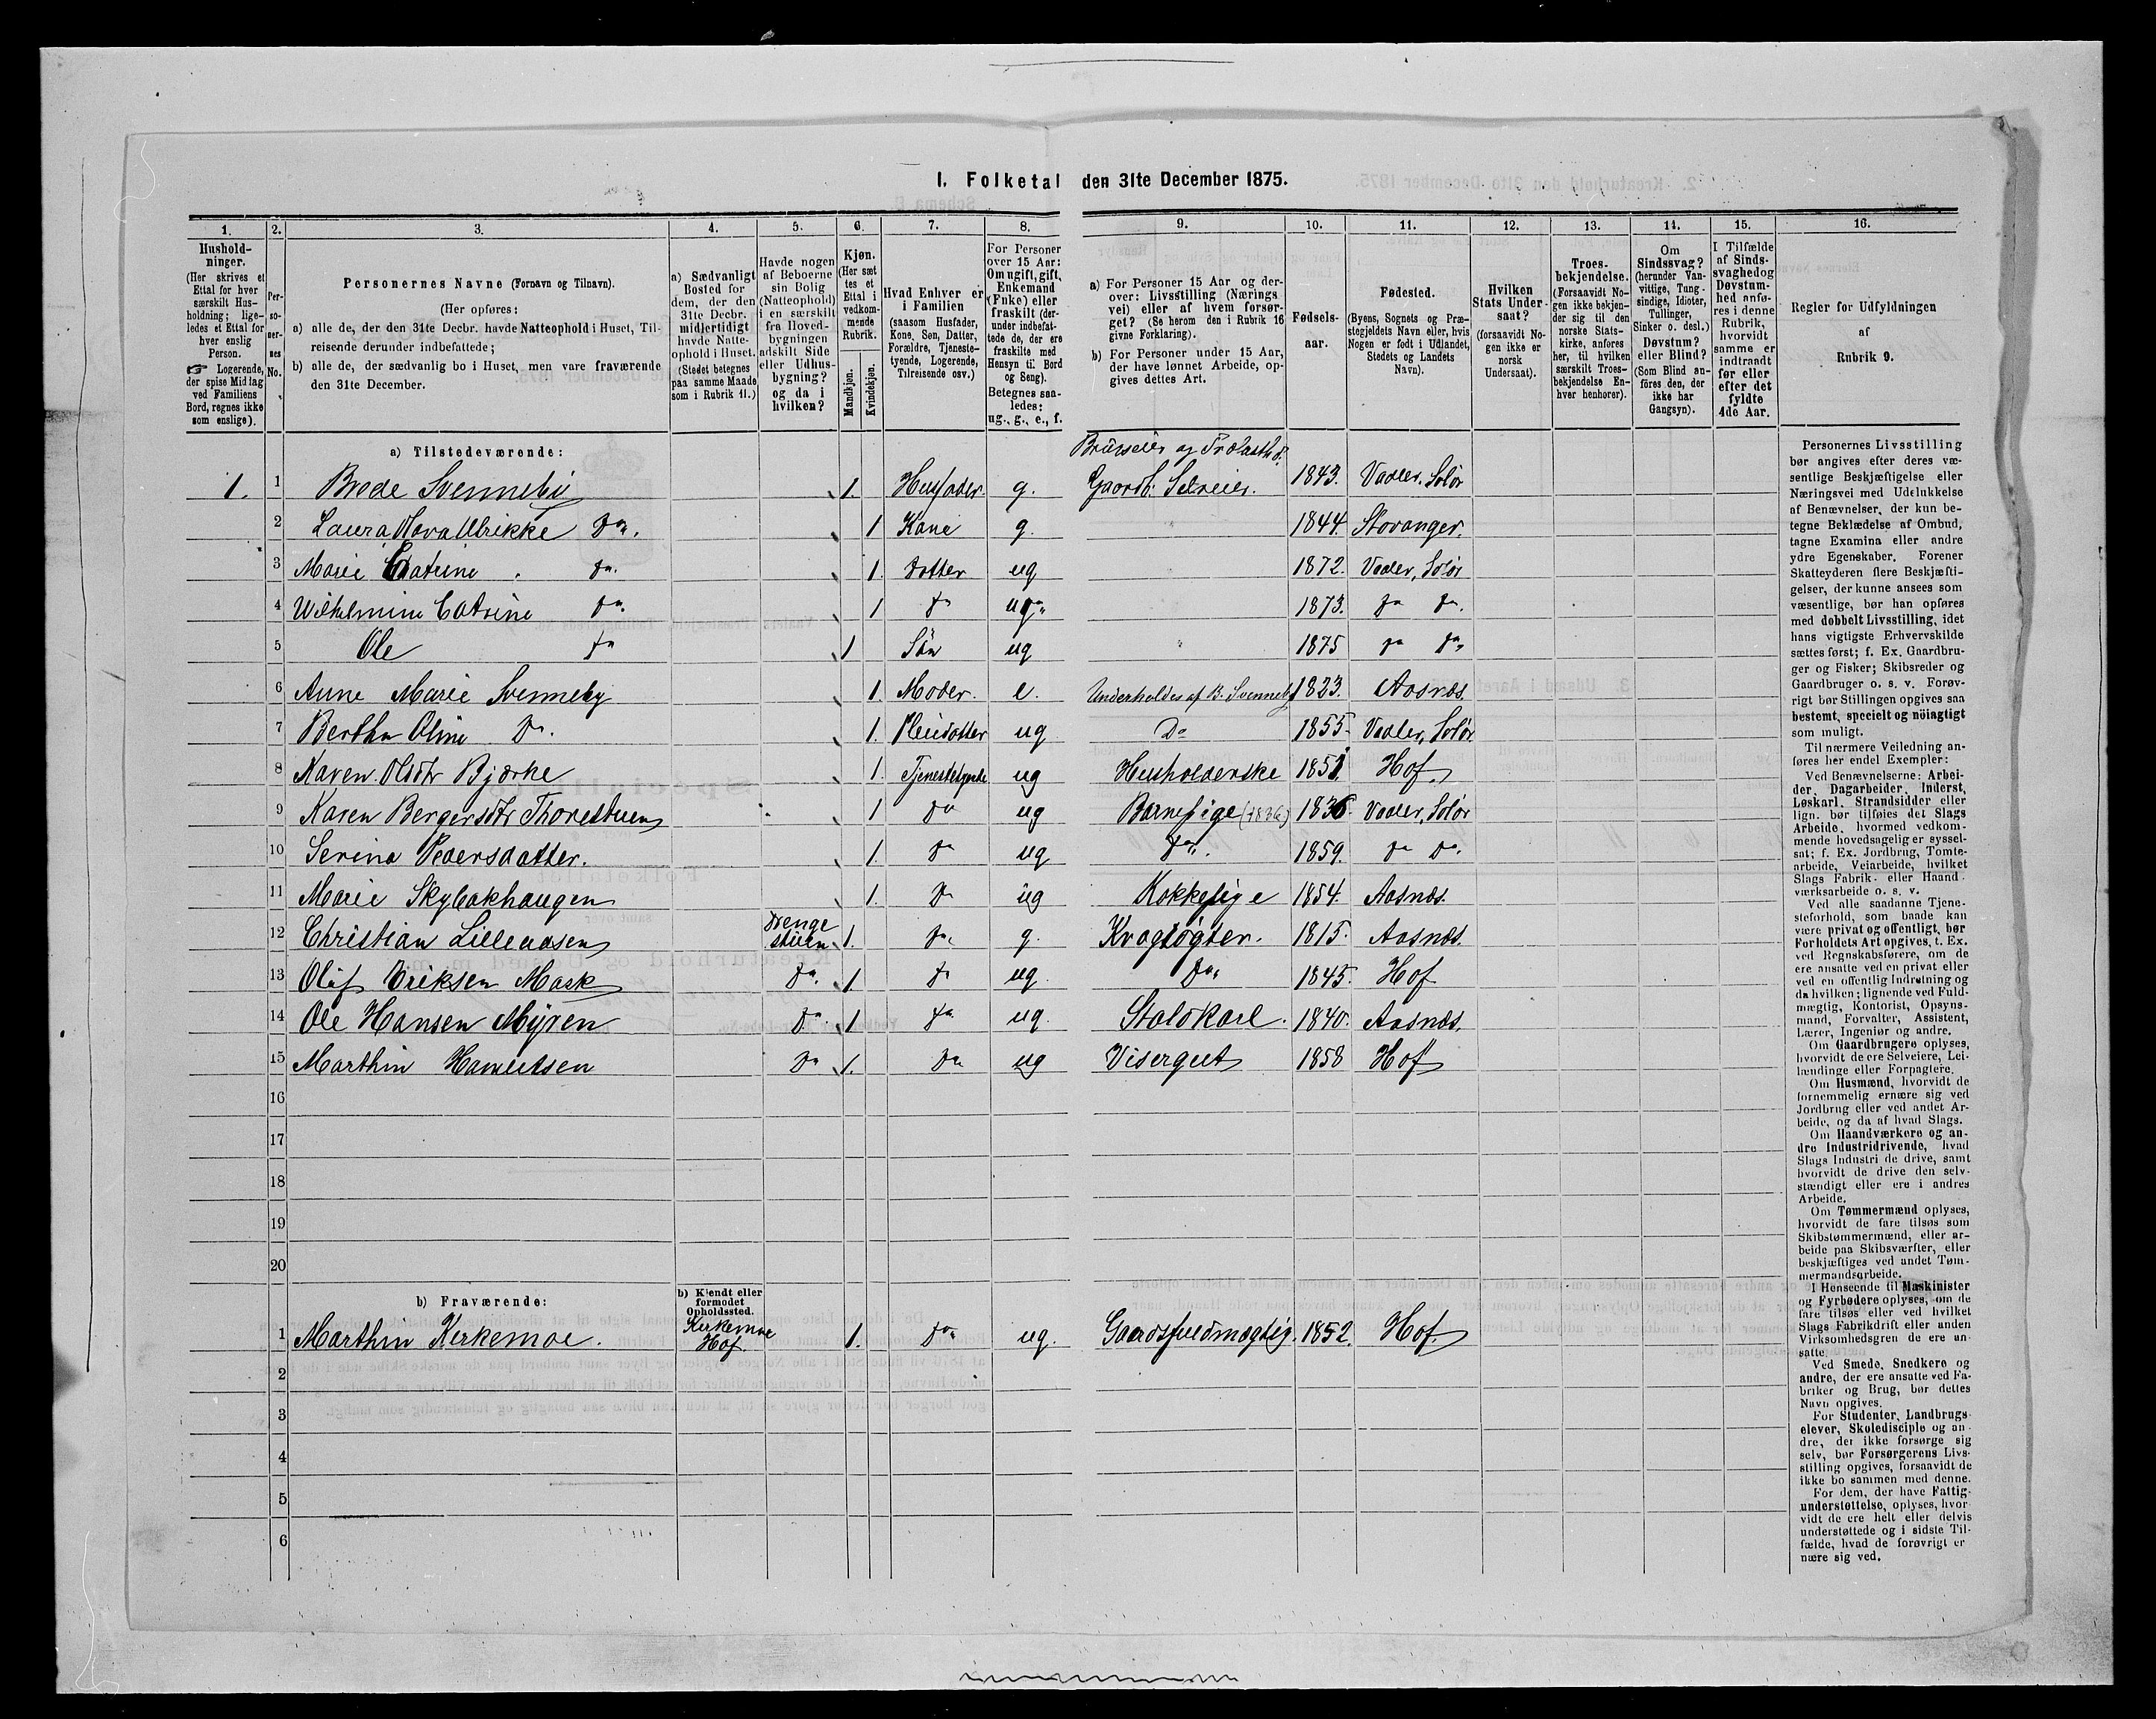 I. Folketal den 31te December 1875.
1. 2. 3. 4. 5. 6. 7. 8. 9. 10. 11. 12. 13. 14. 15. 16.
Hushold-
ninger.
(Her skrives et
Ettal for hver
særskilt Hus-
holdning; lige-
ledes et Ettal for
hver enslig
Person.
☞ Logerende,
der spise Middag
ved Familiens
Bord, regnes ikke
som enslige).
Per-
so-
ner-
nes
No.
Personernes Navne (Fornavn og Tilnavn).
(Her opføres:
a) alle de, der den 31te Decbr. havde Natteophold i Huset, Til-
reisende derunder indbefattede;
b) alle de, der sædvanlig bo i Huset, men vare fraværende
den 31te December.
a) Sædvanligt
Bosted for
dem, der den
31te Decbr.
midlertidigt
havde Natte-
ophold i Huset.
(Stedet betegnes
paa samme Maade
som i Rubrik 11.)
Havde nogen
af Beboerne
sin Bolig
(Natteophold)
i en særskilt
fra Hoved-
bygningen
adskilt Side
eller Udhus-
bygning?
og da i
hvilken?
Kjøn.
(Her sæt
tes et
Ettal i
vedkom-
mende
Rubrik.
Mandkjøn.
Kvindekjøn.
Hvad Enhver er
i Familien
(saasom Husfader,
Kone, Søn, Datter,
Forældre, Tjeneste-
tyende, Logerende,
Tilreisende osv.)
For Personer
over 15 Aar:
Om ugift, gift,
Enkemand
(Enke) eller
fraskilt (der-
under indbefat-
tede de, der ere
fraskilte med
Hensyn til Bord
og Seng).
Betegnes saa-
ledes:
ug., g., e., f.
a) For Personer 15 Aar og der-
over: Livsstilling (Nærings
vei) eller af hvem forsør-
get? (Se herom den i Rubrik 16
givne Forklaring).
b) For Personer under 15 Aar,
der have lønnet Arbeide, op-
gives dettes Art.
Fødsels-
aar.
Fødested.
(Byens, Sognets og Præ-
stegjeldets Navn eller, hvis
Nogen er født i Udlandet,
Stedets og Landets
Navn).
Hvilken
Stats Under-
saat?
(forsaavidt No-
gen ikke er
norsk
Undersaat).
Troes-
bekjendelse.
(Forsaavidt No-
gen ikke bekjen-
der sig til den
norske Stats-
kirke, anføres
her, til hvilken
særskilt Troes-
bekjendelse En-
hver henhører).
Om
Sindssvag?
(herunder Van-
vittige, Tung-
sindige, Idioter,
Tullinger,
Sinker o. desl.)
Døvstum?
eller Blind?
(Som Blind an-
føres den, der
ikke har
Gangsyn).
I Tilfælde
af Sinds-
svaghed og
Døvstum-
hed anfø-
res i denne
Rubrik,
hvorvidt
samme er
indtraadt
før eller
efter det
fyldte
4de Aar.
Regler for Udfyldningen
af
Rubrik 9.
a) Tilstedeværende:
1. 1 Brede Svenneby 1. Husfader. g. Brugseier og Trælasth. Gaardb. Selveier. 1843. Vaaler, Solör
2 Laura Ulrikke Do. 1 Kone g. 1844. Stavanger.
3 Marie Catrine Do. 1. Datter ug 1872. Vaaler, Solör
4 Wilhelmine Catrine Do. 1 Do ug 1873. Do Do.
5 Ole Do 1 Sön ug 1875 Do Do
6 Anne Marie Svenneby 1. Moder. e. Underholdes af B. Svenneby 1823. Aasnæs.
7 Bertha Oline Do. 1. Pleiedatter ug Do 1855. Vaaler, Solör
8 Karen Olsdtr Bjørke 1. Tjenestetyende ug Husholderske 1851. Hof.
9 Karen Bergersdtr Thorestuen 1 Do ug Barnepige (1836) 1836. Vaaler, Solör
10 Serina Pedersdatter. 1. Do ug Do. 1859. Do Do.
11 Marie Skybakhaugen 1. Do ug Kokkepige 1854. Aasnæs.
12 Christian Lilleaasen Drenge stuen 1. Do. g. Kragtøgter. 1815. Aasnæs.
13 Oluf Eriksen Mask Do. 1. Do ug. Do. 1845. Hof
14 Ole Hansen Myren Do. 1 Do ug. Staldkarl. 1840. Aasnæs.
15 Marthin Do 1. Do ug Visergut 1858 Hof
16
17
18
19
20
b) Fraværende:
b) Kjendt eller
formodet
Opholdssted.
1 Marthin Kirkemoe. Kirkemoe Hof. 1. Do ug. Gaardsfuldmægtig. 1852. Hof.
2
3
4
5
6
Personernes Livsstilling
bør angives efter deres væ-
sentlige Beskjæftigelse eller
Næringsvei med Udelukkelse
af Benævnelser, der kun be-
tegne Beklædelse af Ombud,
tagne Examina eller andre
ydre Egenskaber. Forener
Skatteyderen flere Beskjæfti-
gelser, der kunne ansees som
væsentlige, bør han opføres
med dobbelt Livsstilling, idet
hans vigtigste Erhvervskilde
sættes først; f. Ex. Gaardbru-
ger og Fisker; Skibsreder og
Gaardbruger o. s. v. Forøv-
rigt bør Stillingen opgives saa
bestemt, specielt og nöiagtigt
som muligt.
Til nærmere Veiledning an-
føres her endel Exempler:
Ved Benævnelserne: Arbei-
der, Dagarbeider, Inderst,
Løskarl, Strandsidder eller
lign. bør tilføies det Slags
Arbeide, hvormed vedkom-
mende hovedsagelig er syssel-
sat; f. Ex. Jordbrug, Tomte-
arbeide, Veiarbeide, hvilket
Slags Fabrik- eller Haand-
værksarbeide o. s. v.
Ved alle saadanne Tjene-
steforhold, som baade kan
være privat og offentligt, bør
Forholdets Art opgives, t. Ex.
ved Regnskabsførere, om de
ere ansatte ved en privat eller
ved en offentlig Indretning og
da hvilken; lignende ved Fuld-
mægtig, Kontorist, Opsyns-
mand, Forvalter, Assistent,
Lærer, Ingeniør og andre.
Om Gaardbrugere oplyses,
hvorvidt de ere Selveiere, Lei-
lændinge eller Forpagtere.
Om Husmænd, hvorvidt de
fornemmelig ernære sig ved
Jordbrug eller ved andet Ar-
beide, og da af hvad Slags.
Om Haandværkere og an-
dre Industridrivende, hvad
Slags Industri de drive, samt
hvorvidt de drive den selv-
stændigt eller ere i andres
Arbeide.
Om Tømmermænd oplyses,
hvorvidt de fare tilsøs som
Skibstømmermænd, eller ar-
beide paa Skibsværfter, eller
beskjæftiges ved andet Tøm-
mermandsarbeide.
I Henseende til Maskinister
og Fyrbødere oplyses, om de
fare tilsøs eller ved hvilket
Slags Fabrikdrift eller anden
Virksomhedsgren de ere an-
satte.
Ved Smede, Snedkere og
andre, der ere ansatte ved Fa-
briker og Brug, bør dettes
Navn opgives.
For Studenter, Landbrugs-
elever, Skoledisciple og an-
dre, der ikke forsørge sig
selv, bør Forsørgerens Livs-
stilling opgives, forsaavidt de
ikke bo sammen med denne.
For dem, der have Fattig-
understøttelse, oplyses, hvor-
vidt de ere helt eller delvis
understøttede og i sidste Til-
fælde, hvad de forøvrigt er
nære sig ved.